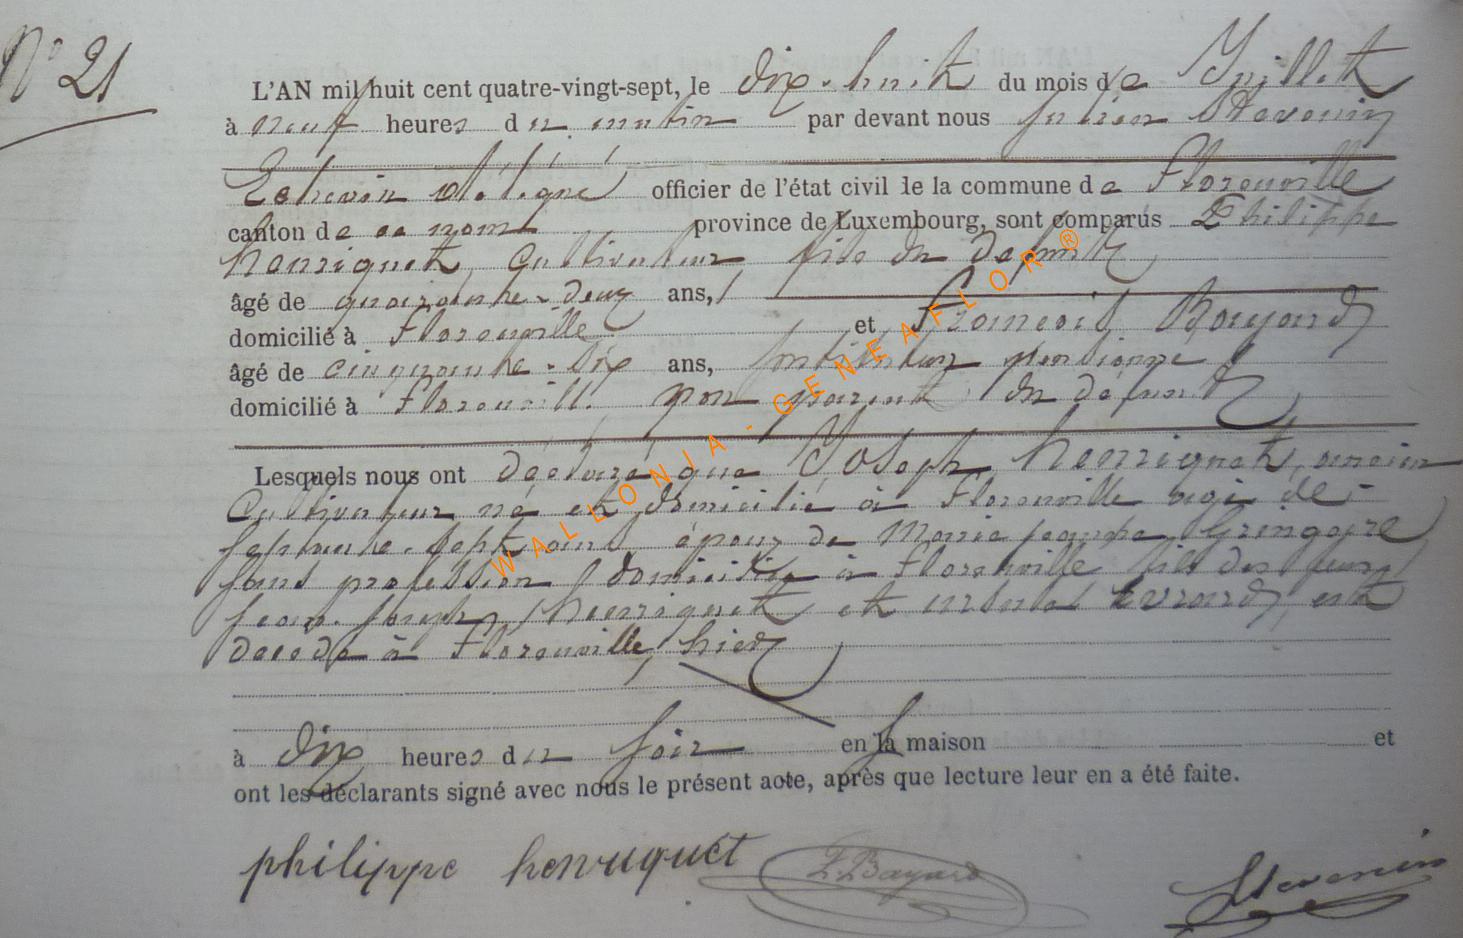 N° 21
L'AN mil huit cent quatre-vingt-sept, le dix-huit du mois de Juillet
à neuf heures du matin par devant nous Julien Stevenin
Echevin délégué officier de l'état civil de la commune de Florenville
canton de ce nom province de Luxembourg, sont comparus Philippe
henriquet, Cultivateur fils du defunt
âgé de quarante-deux ans,
domicilié à Florenville et François Bayard
âgé de cinquante-six ans, instituteur pensionné
domicilié à Florenville non parent du défunt
Lesquels nous ont déclaré que Joseph henriquet, ancien
Cultivateur né et domicilié à Florenville agé de
septante-sept ans époux de Marie jeanne Gringoire
sans profession domiciliée à Florenville fils des feux
jean-joseph henriquet et Evrard, est
décédé à Florenville, hier
à dix heures du soir en sa maison et
ont les déclarants signé avec nous le présent acte, après que lecture leur en a été faite.
philippe henriquet F. Bayard Stevenin
WALLONIA - GENEAFLOR ®